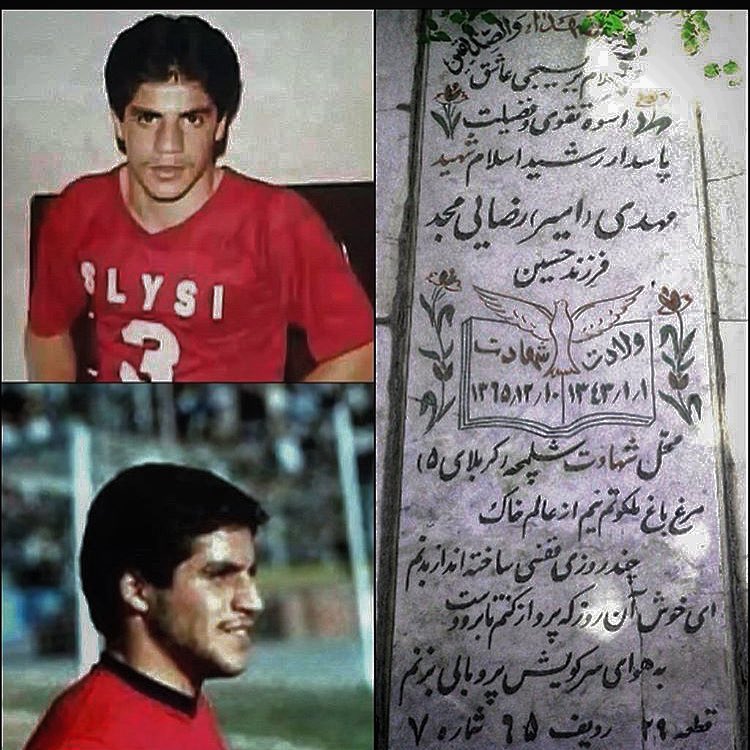 SLYSI
3
شهداء والصدیقین
بسیجی عاشق
اسوه تقوی و فضیلت
پاسدار رشید اسلام شهید
مهدی (امیر) رضایی مجد
فرزند حسین
ولادت شهادت
۱۳۴۳،۱،۱ ۱۳۶۵،۱۲،۱۰
محل شهادت شلمچه (کربلای ۵)
مرغ باغ ملکوتم نیم از عالم خاک
چند روزی قفسی ساخته اند از بدنم
ای خوش آن روز که پرواز کنم تا بر دوست
به هوای سر کویش پر و بالی بزنم
قطعه ۲۹ ردیف ۶۵ شماره ۷